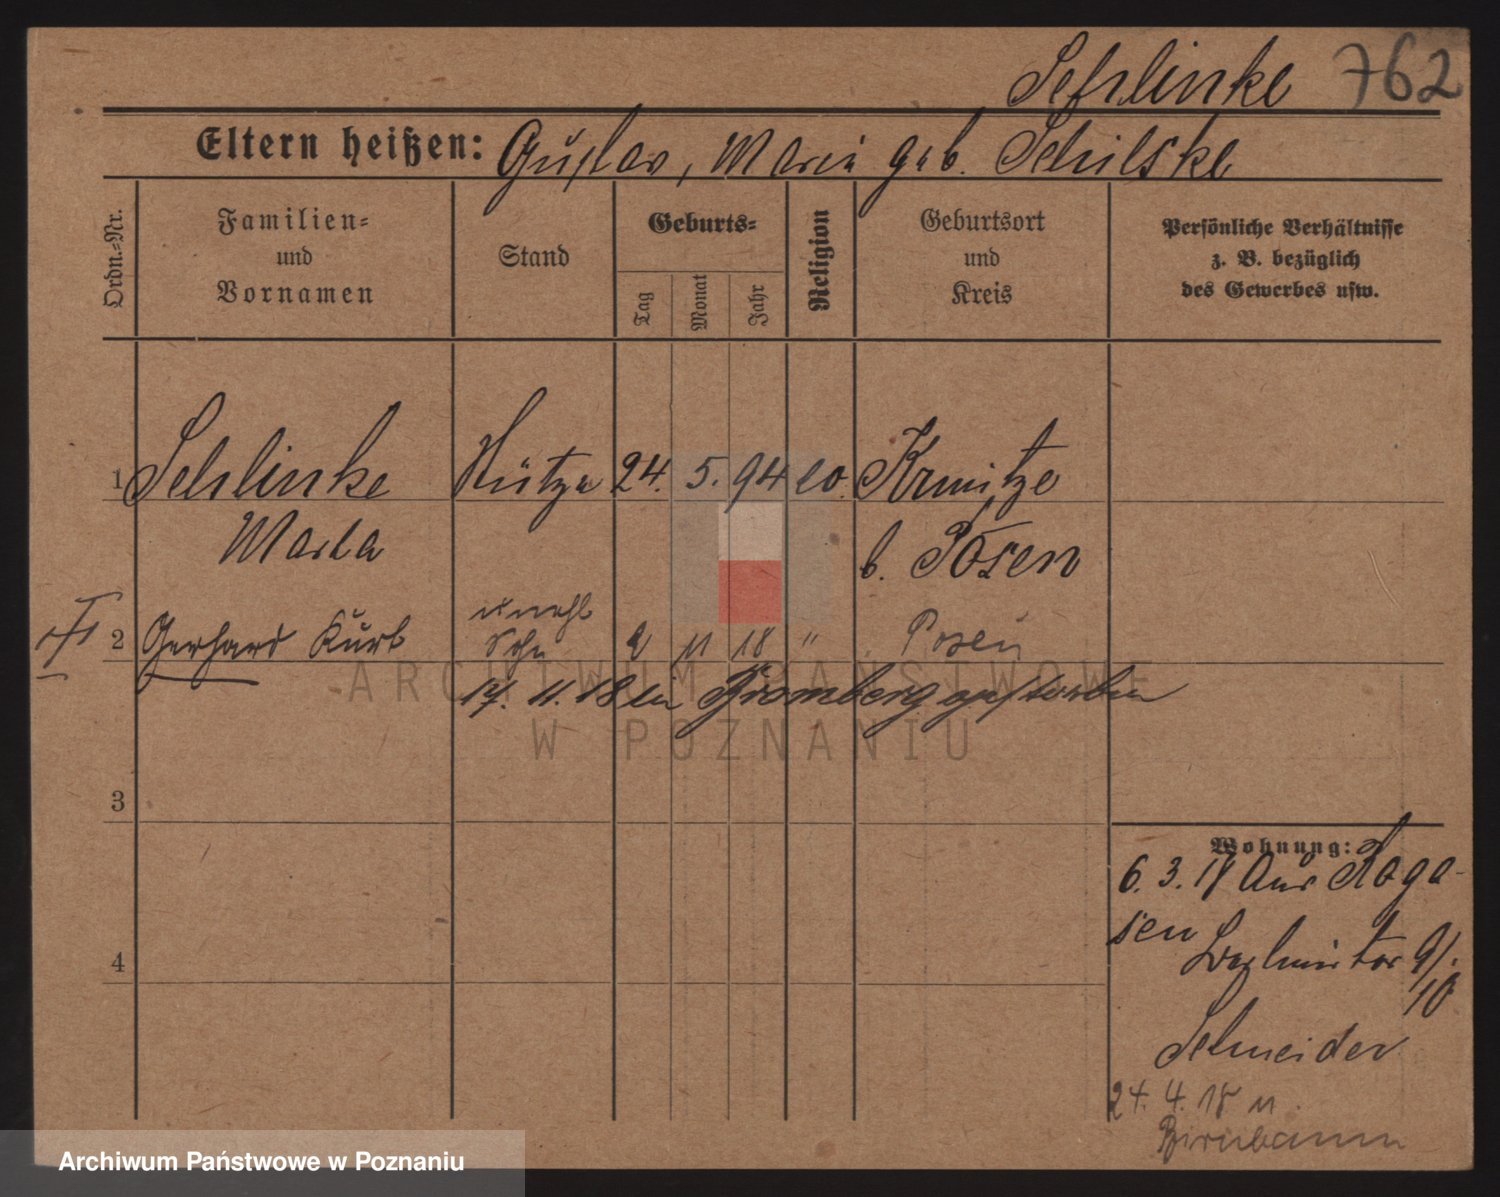 Schlinke 762
Eltern heißen: Gustav, Maria geb. Schilske
Ordn.-Nr.
Familien- und Vornamen
Stand
Geburts-
Tag
Monat
Jahr
Religion
Geburtsort und Kreis
Persönliche Verhältnisse
z. B. bezüglich
des Gewerbes usw.
1 Schlinke Stütze 24. 5. 94 ev. Krinitze
Marta b. Posen
2 Gerhard Kurt unehl Sohn 2 11 18 " Posen
17. 11. 18 in Bromberg gestorben
3
4
Wohnung:
6. 3. 18 aus Roga-
sen
9/10
Schneider
24. 4. 18 n.
Birnbaum
ARCHIWUM PAŃSTWOWE
W POZNANIU
Archiwum Państwowe w Poznaniu